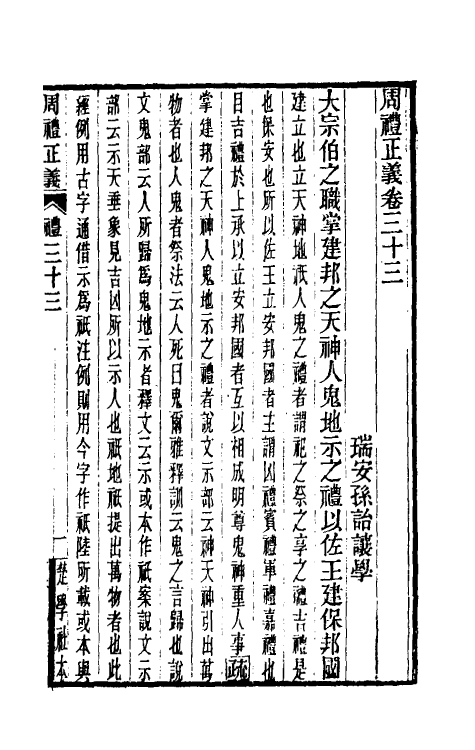 周禮正義卷三十三
瑞安孫詒讓學
大宗伯之職掌建邦之天神人鬼地示之禮以佐王建保邦國
建立也立天神地祇人鬼之禮者謂祀之祭之享之禮吉禮是
也保安也所以佐王立安邦國者主謂凶禮賓禮軍禮嘉禮也
目吉禮於上承以立安邦國者互以相成明尊鬼神重人事疏
掌建邦之天神人鬼地示之禮者說文示部云神天神引出萬
物者也人鬼者祭法云人死曰鬼爾雅釋訓云鬼之言歸也說
文鬼部云人所歸爲鬼地示者釋文云示或本作祇案說文示
部云示天垂象見吉凶所以示人也祇地祇提出萬物者也此
經例用古字通借示爲祇注例則用今字作祇陸所載或本與
周禮正義
禮三十三
一
楚學社本